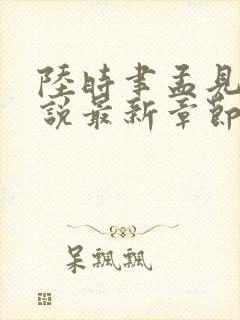 陸時聿孟見
說最新章節
呆飄飄